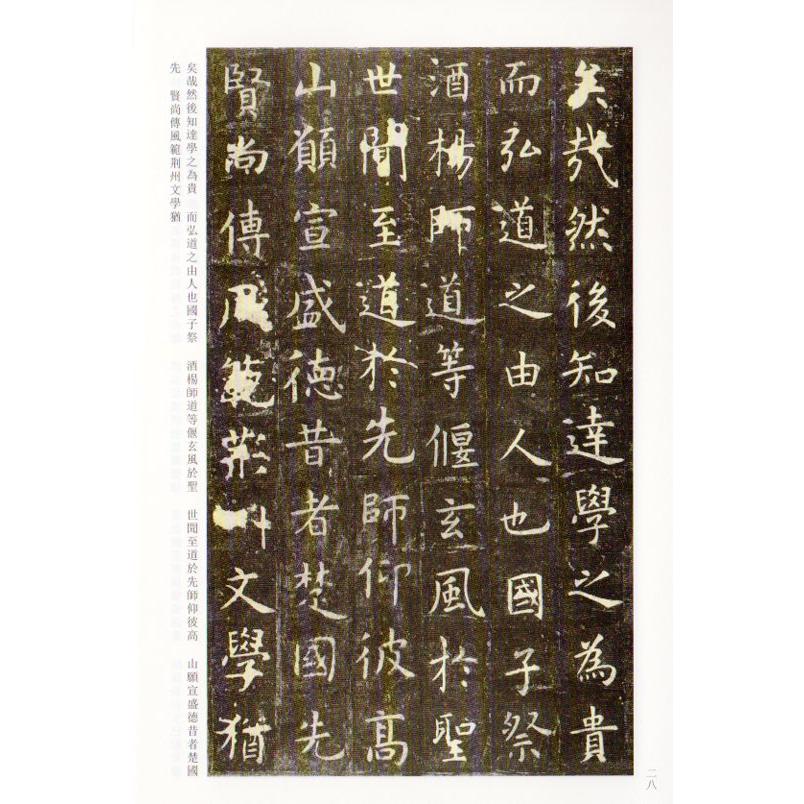 矣哉然後知達學之為貴
而弘道之由人也國子祭
酒楊師道等偃玄風於聖
世聞至道於先師仰彼高
山願宣盛德昔者楚國先
賢尚傳風範荊州文學猶
矣哉然後知達學之為貴 而弘道之由人也國子祭 酒楊師道等偃玄風於聖 世聞至道於先師仰彼高 山願宣盛德昔者楚國
先 賢尚傳風範荊州文學猶
二八